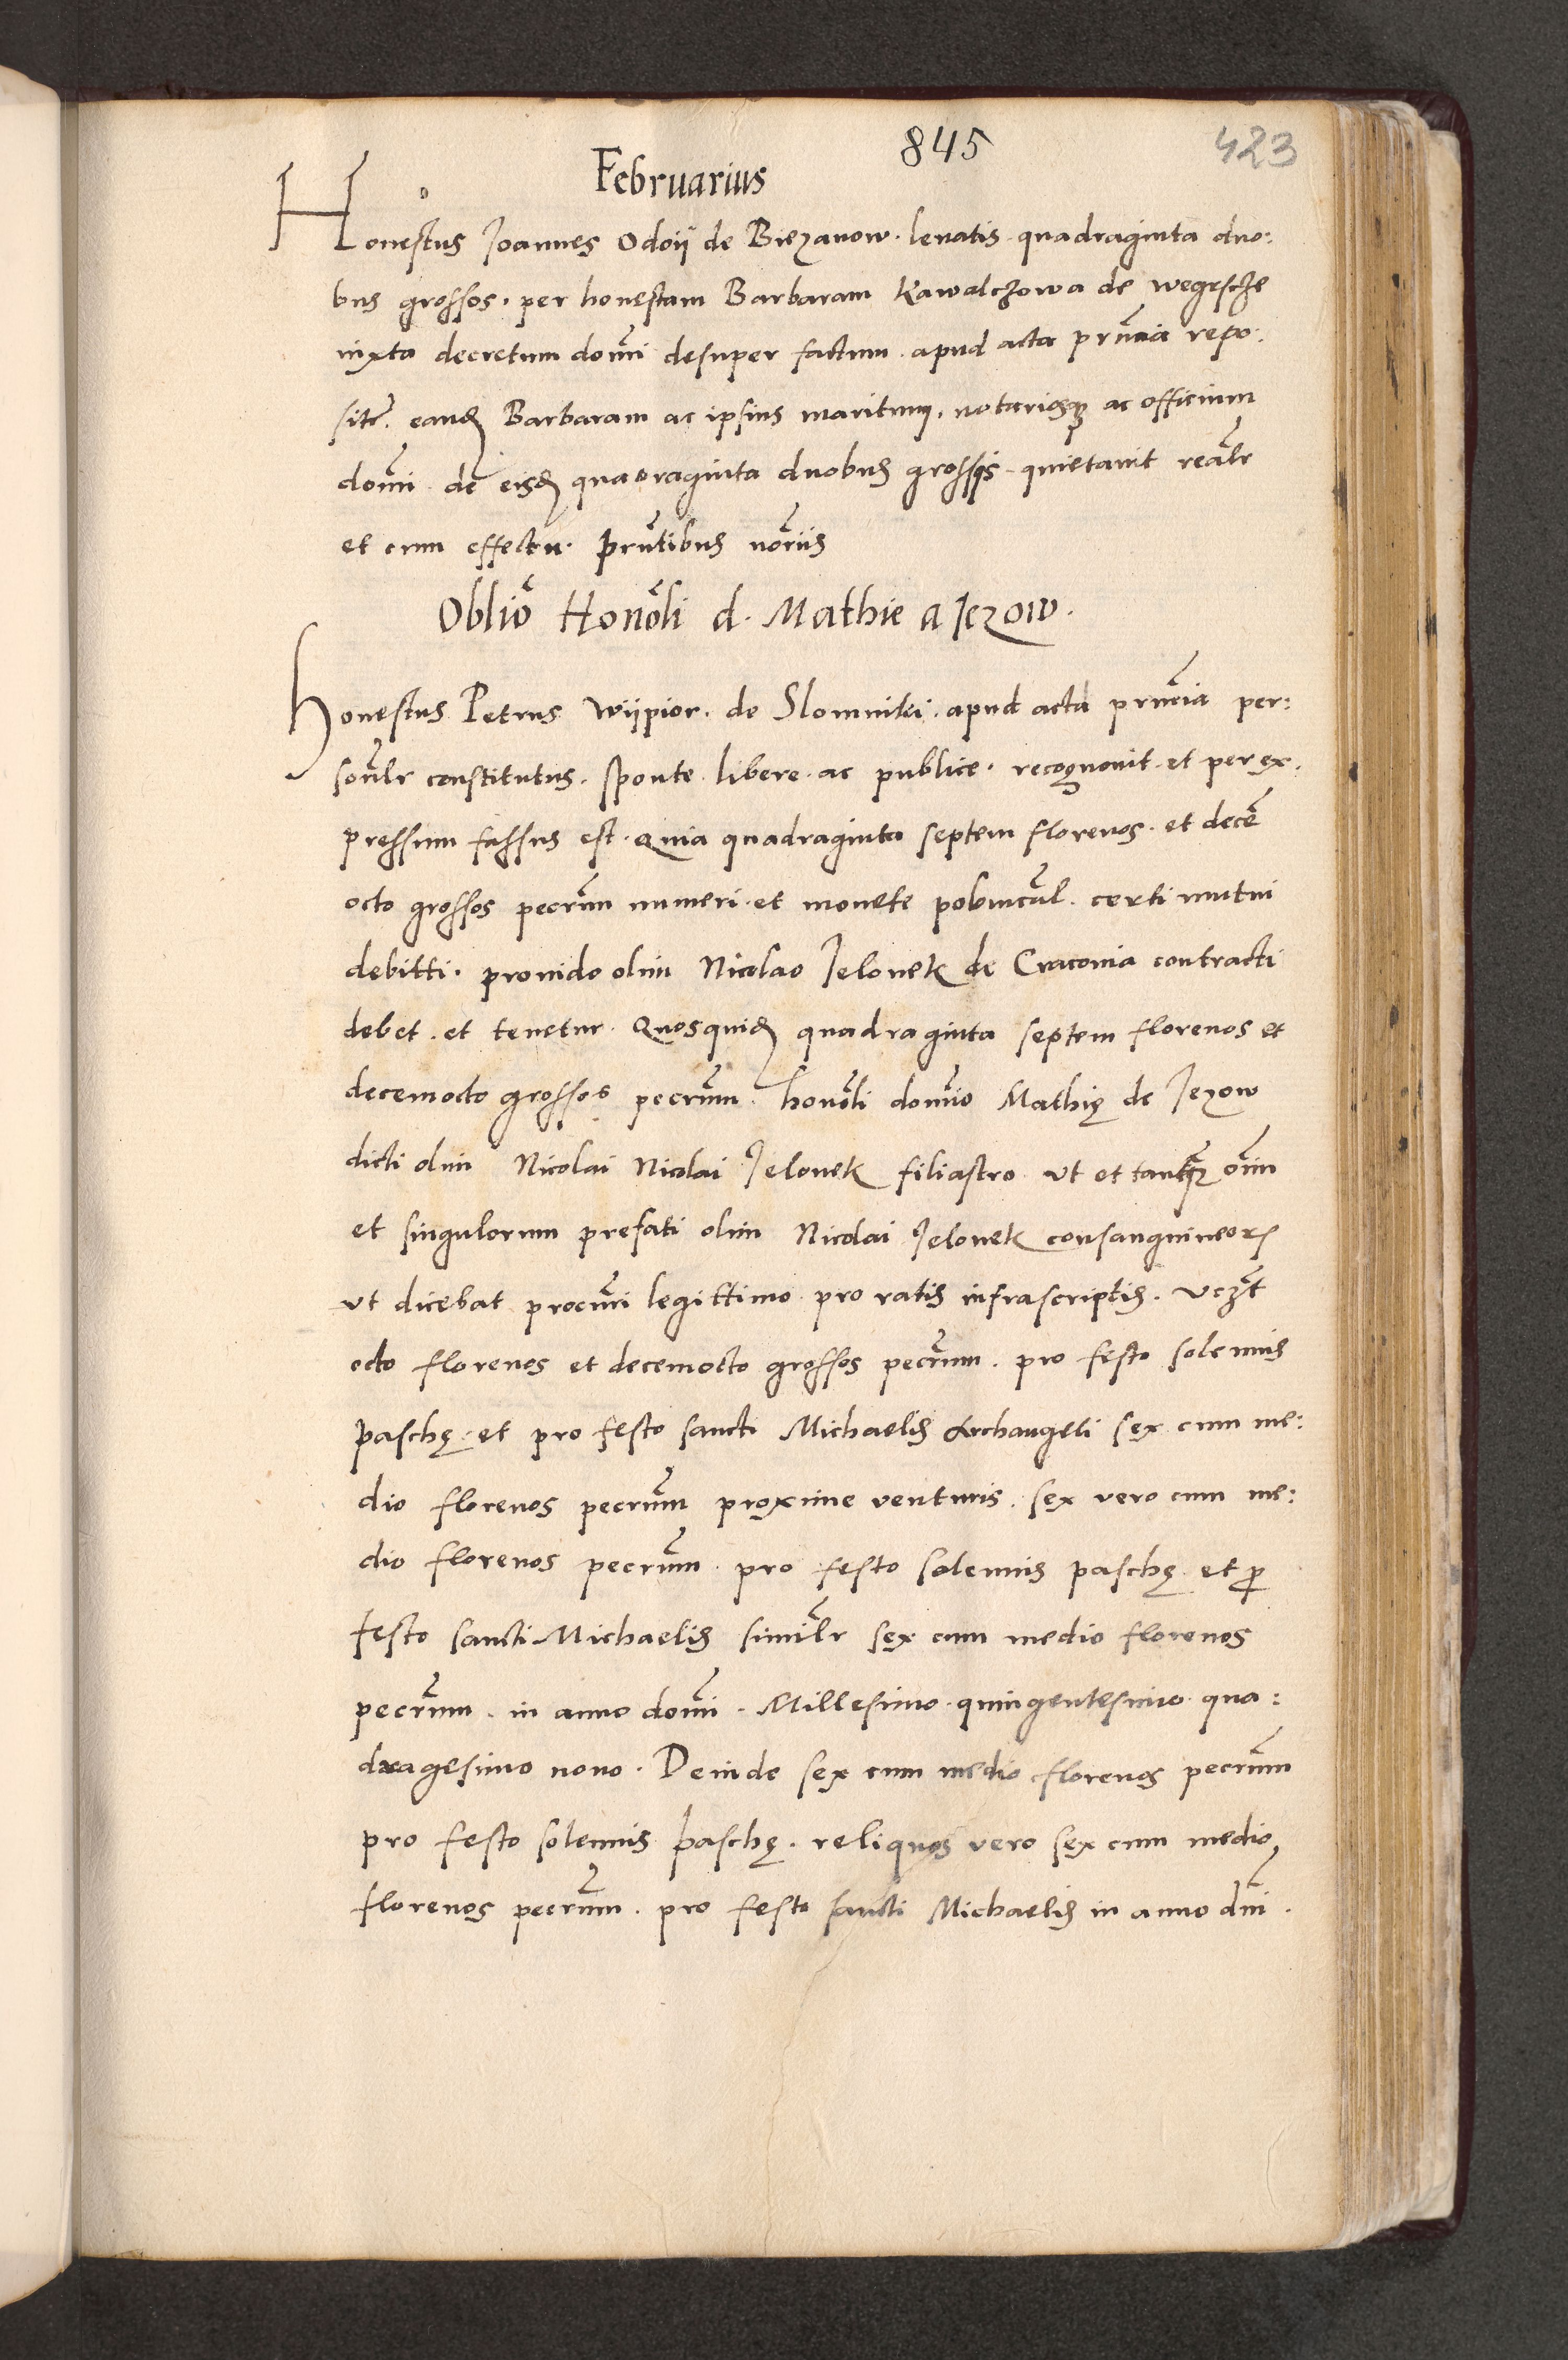 845
423
Februarius
Honestus Joannes Odoij de Biezanow. levatis quadraginta duo:
bus grossos. per honestam Barbaram Kawalczowa de wegrscze
iuxta decretum domĩ desuper factum. apud acta prñcia repo.
sitĩs. eandẽ Barbaram ac ipsius maritum, notariosqȝ ac officium
domĩ. de eisdẽ quadraginta duobus grossis quietavit reãlr
et cum effectu. Prñtibus noriis
Obliõ Honõli d. Mathie a Jezow.
Honestus Petrus Wijpior. de Slomniki. apud acta prñcia per:
sonãlr constitutus. sponte. libere. ac publice. recognovit. et per ex.
pressum fassus est. Quia quadraginta septem florenos. et decẽ
octo grossos pecrũm numeri. et monete polonical. certi mutui
debitti. provido olim Nicolao Jelonek de Cracovia contracti
debet. et tenetur. Quosquidẽ quadraginta septem florenos et
decemocto grossos pecrũm. honõli domĩo Mathię de Jezow
dicti olim Nicolai Nicolai Jelonek filiastro ut et tanqȝ oĩm
et singulorum prefati olim Nicolai Jelonek consanguineorȝ
ut dicebat procũri legittimo pro ratis infrascriptis. Vczt
octo florenos et decemocto grossos pecrũm. pro festo solemnis
paschę. et pro festo sancti Michaelis Archangeli sex cum me:
dio florenos pecrũm proxime venturis. sex vero cum me:
dio florenos pecrũm. pro festo solemnis paschę. et ꝓ
festo sancti Michaelis similr sex cum medio florenos
pecrũm. in anno domĩ. Millesimo quingentesimo qua:
dragesimo nono. Deinde sex cum medio florenos pecrũm
pro festo solemnis paschę. reliquos vero sex cum medio
florenos pecrũm. pro festo sancti Michaelis in anno dñi.